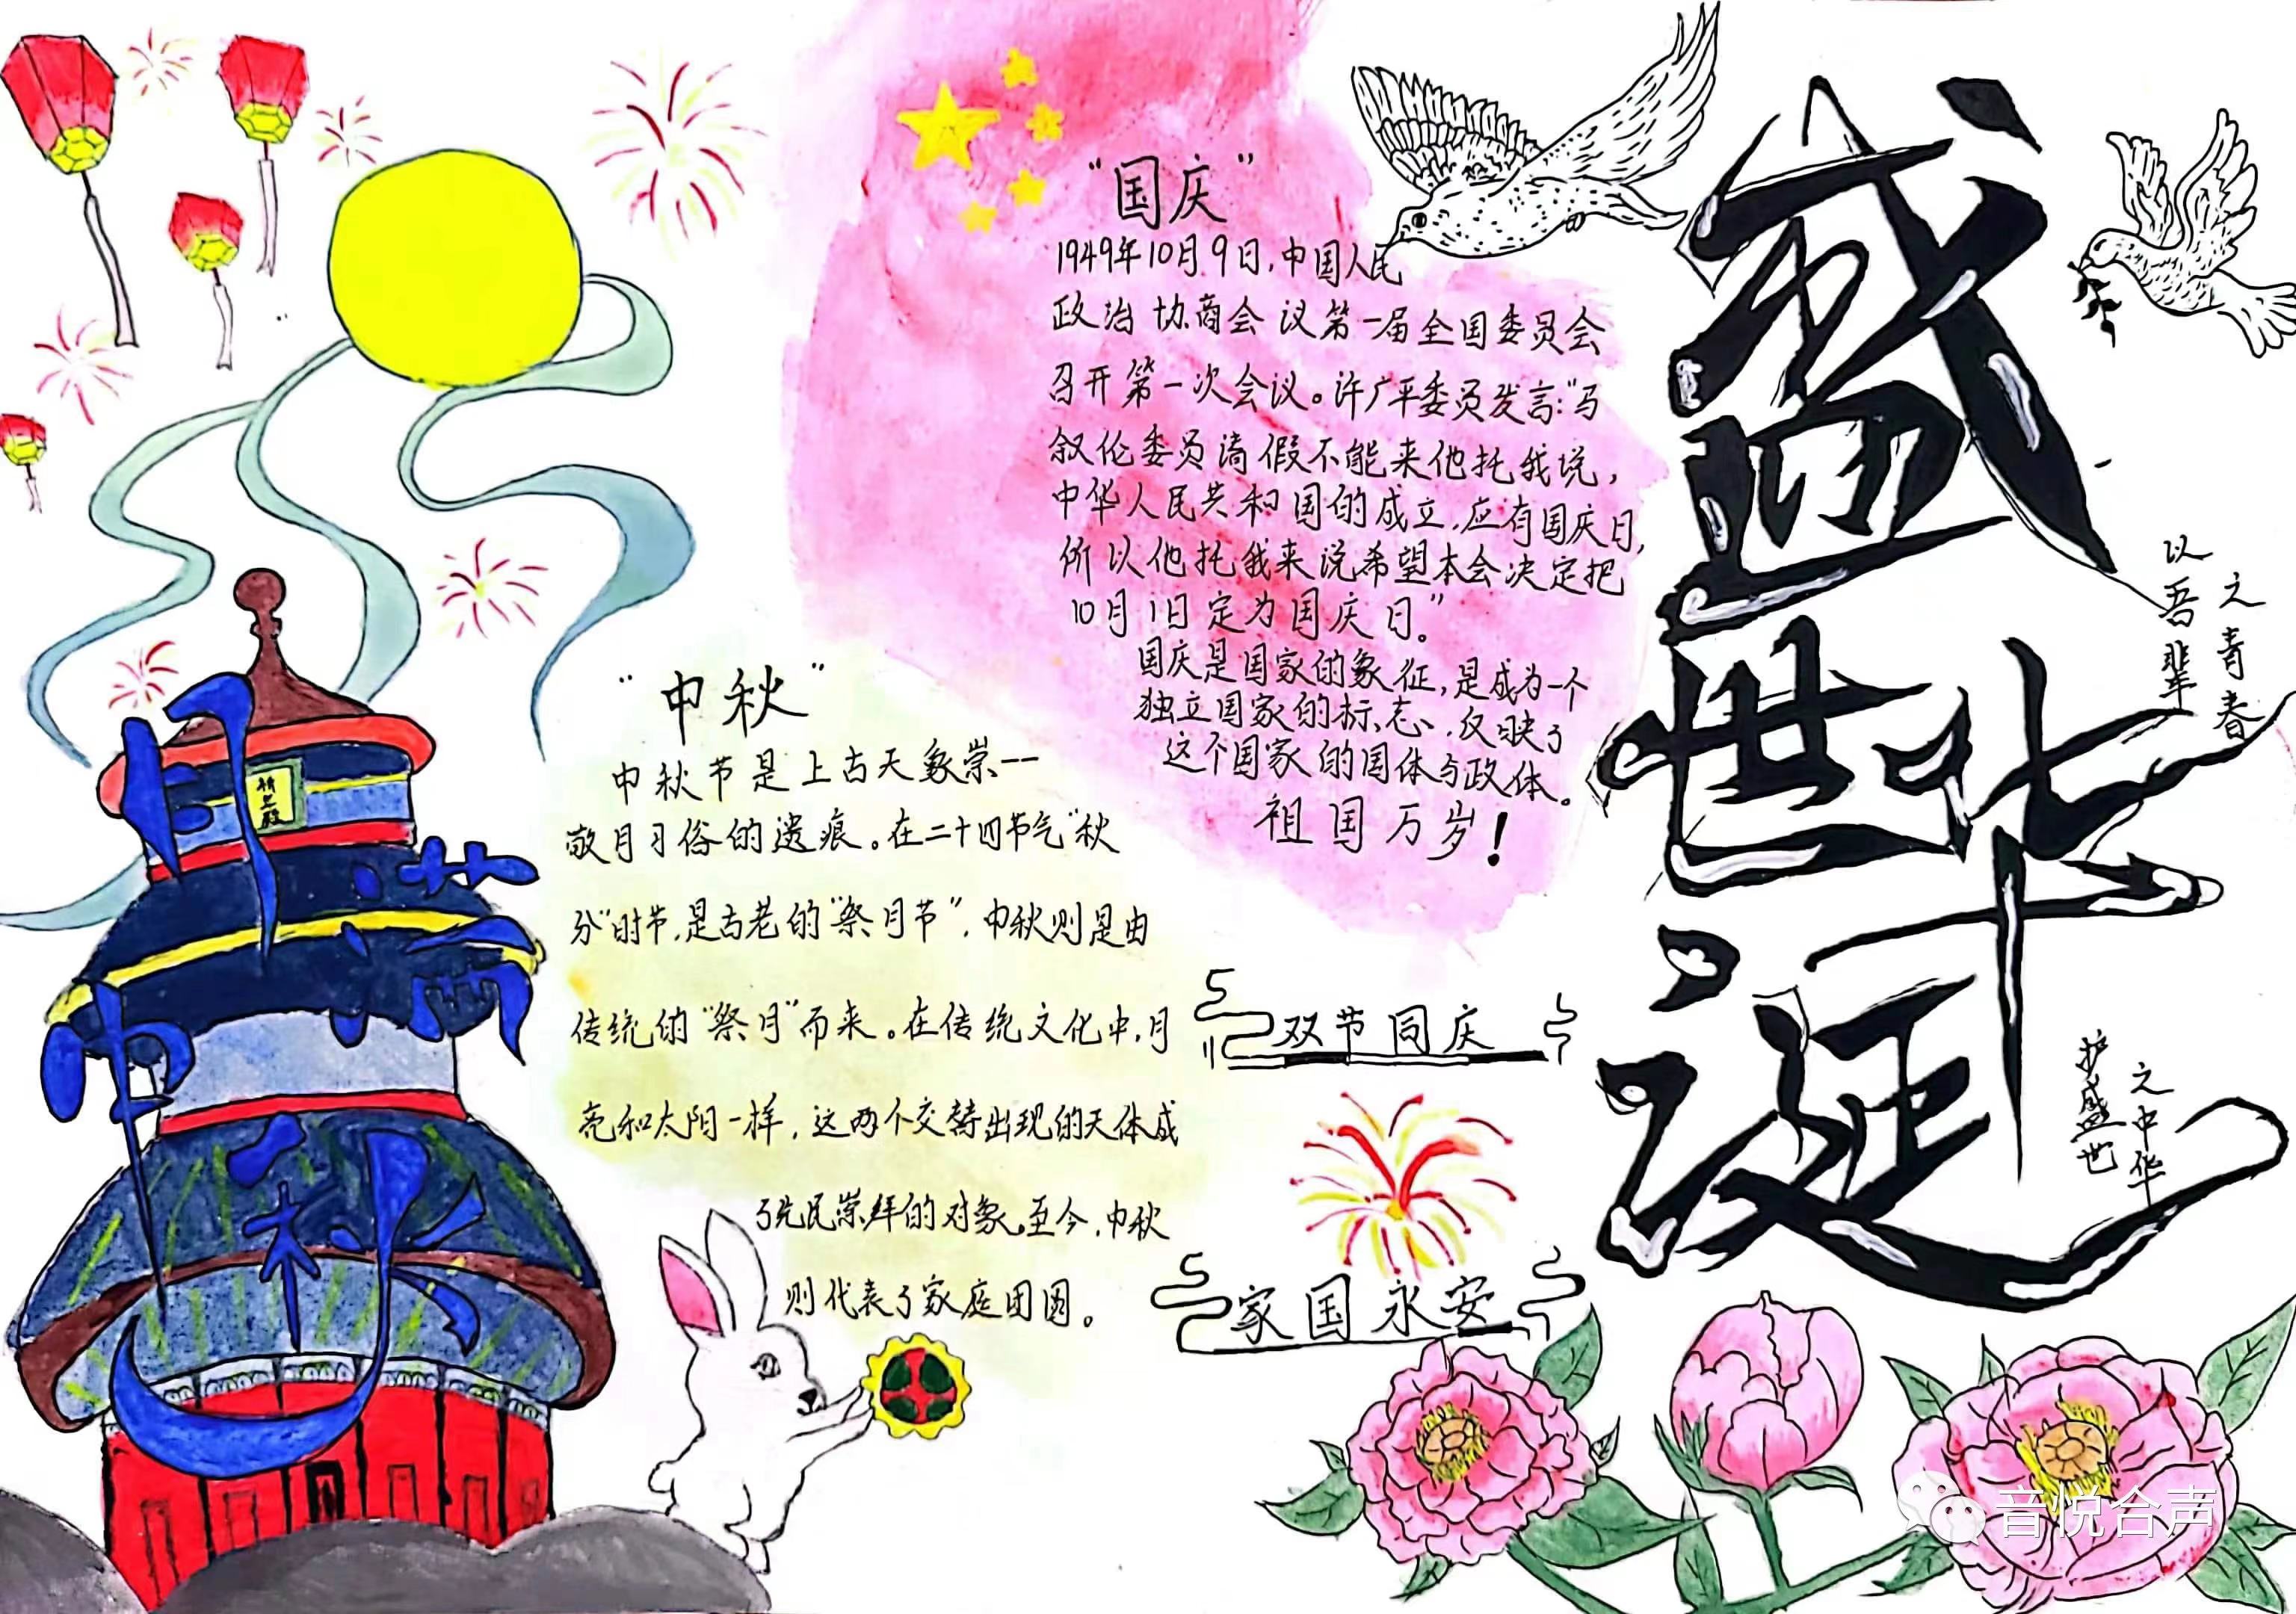 盛世华诞
以吾辈
之青春
护盛世
之中华
“国庆”
1949年10月9日,中国人民
政治协商会议第一届全国委员会
召开第一次会议。许广平委员发言:“马
叙伦委员请假不能来他托我说,
中华人民共和国的成立,应有国庆日,
所以他托我来说希望本会决定把
10月1日定为国庆日。”
国庆是国家的象征,是成为一个
独立国家的标志,反映了
这个国家的国体与政体。
祖国万岁!
“中秋”
中秋节是上古天象崇一
敬月习俗的遗痕。在二十四节气“秋
分”时节,是古老的“祭月节”,中秋则是由
传统的“祭月”而来。在传统文化中,月
亮和太阳一样,这两个交替出现的天体成
了先民崇拜的对象。至今,中秋
则代表了家庭团圆。
双节同庆
家国永安
月满
中秋
祈年殿
音悦合声